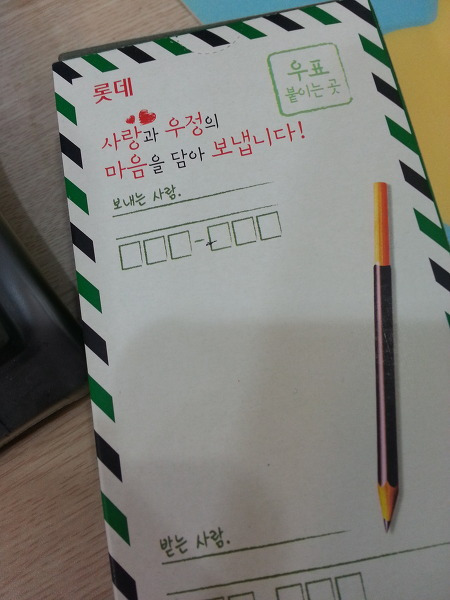 롯데
우표
붙이는 곳
사랑과 우정의
마음을 담아 보냅니다!
보내는 사람.
받는 사람.